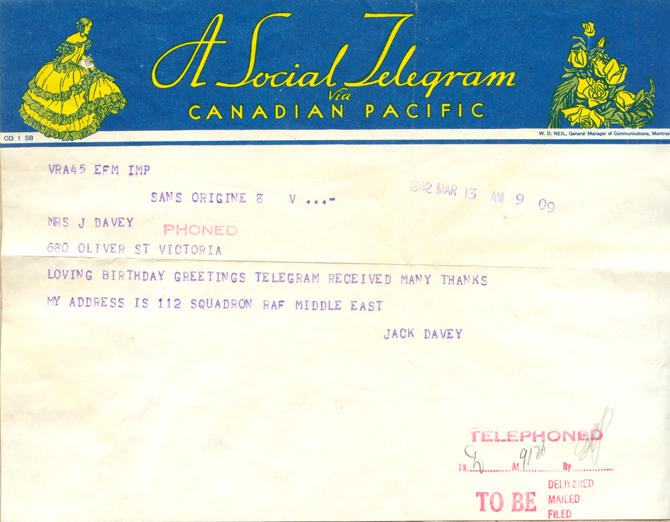 A Social Telegram
Via
CANADIAN PACIFIC
CD 1 SB
W. D. NEIL, General Manager of Communications, Montreal
VRA45 EFM IMP
SANS ORIGINE 8 V ...-
1942 MAR 13 AM 9 09
MRS J DAVEY
PHONED
680 OLIVER ST VICTORIA
LOVING BIRTHDAY GREETINGS TELEGRAM RECEIVED MANY THANKS
MY ADDRESS IS 112 SQUADRON RAF MIDDLE EAST
JACK DAVEY
TELEPHONED
To At By
TO BE
DELIVERED
MAILED
FILED